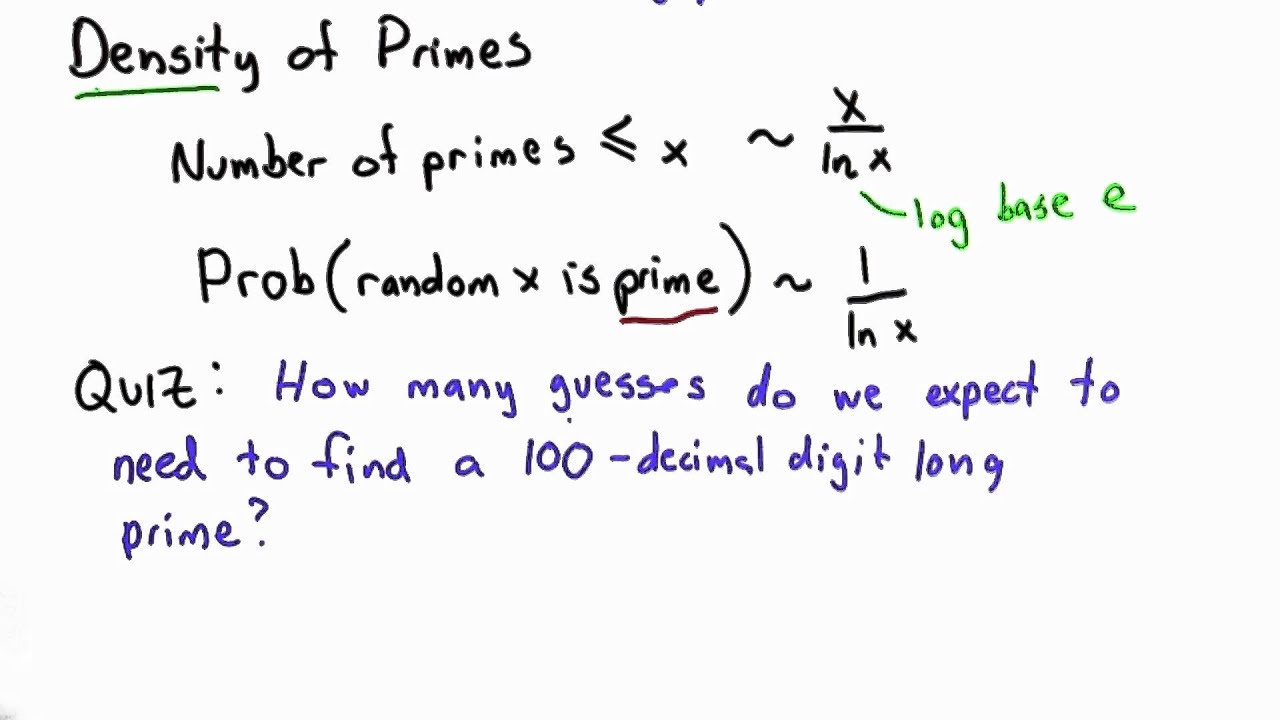 Density of Primes
Number of primes ≤ x ~ x/ln x
log base e
Prob(random x is prime) ~ 1/ln x
QUIZ: How many guesses do we expect to
need to find a 100-decimal digit long
prime?